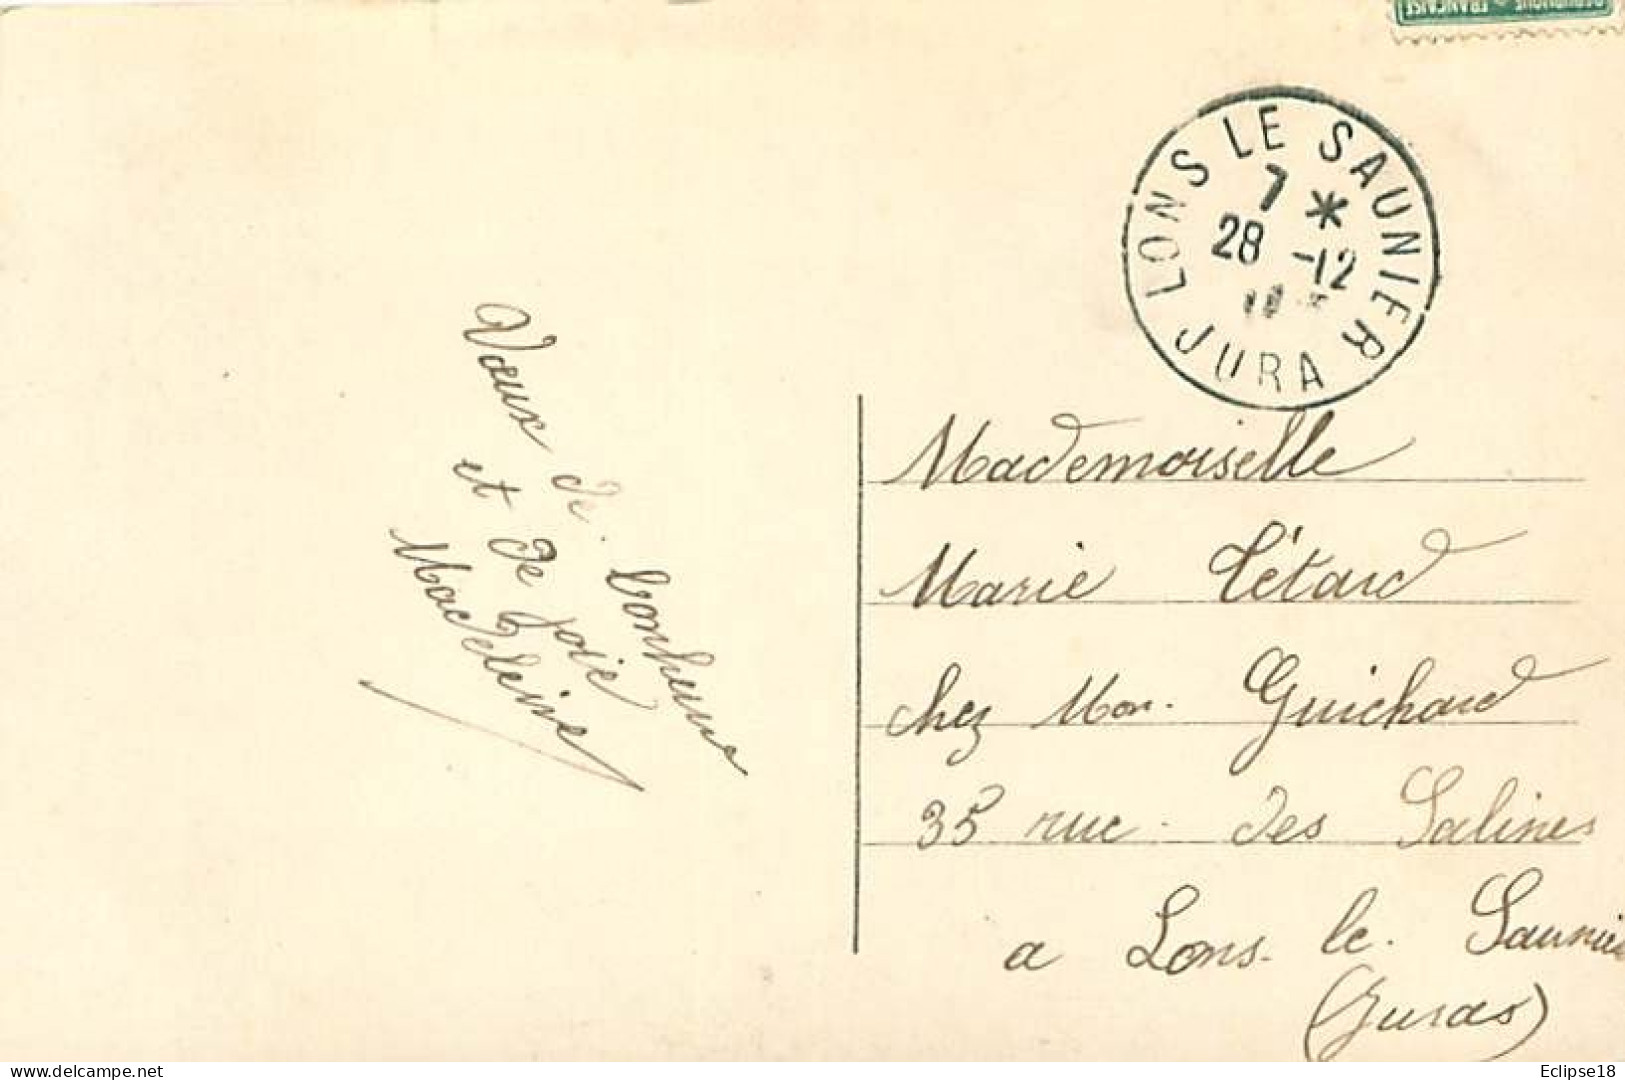 RÉPUBLIQUE FRANÇAISE
LONS LE SAUNIER
7 *
28 -12
JURA
Vœux de bonheur
et de joie
Madeleine
Mademoiselle
Marie Létard
chez Mon. Guichard
35 rue des Salines
a Lons. le. Saunier
(Juras)
www.delcampe.net
Eclipse18